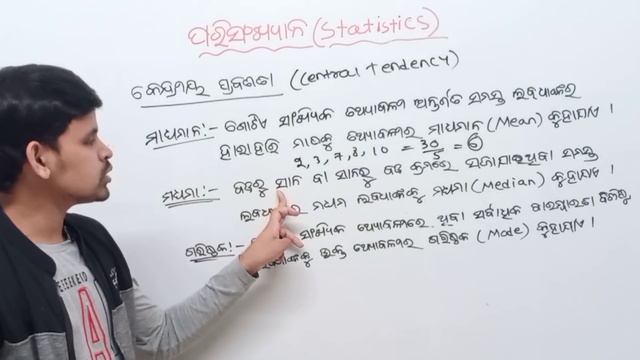 ପରିସଂଖ୍ୟାନ (Statistics)
କେନ୍ଦ୍ରୀୟ ପ୍ରବଣତା (Central Tendency)
ମାଧମାନ:- ଗୋଟିଏ ସାଂଖ୍ୟିକ ତଥ୍ୟାବଳୀ ଅନ୍ତର୍ଗତ ସମସ୍ତ ଲବ୍ଧାଙ୍କର
ହାରାହାରି ମାନକୁ ତଥ୍ୟାବଳୀର ମାଧମାନ (Mean) କୁହାଯାଏ ।
2, 3, 7, 8, 10 = 30/5 = 6
ମଧମା:- ବଡ଼ରୁ ସାନ ବା ସାନରୁ ବଡ଼ କ୍ରମରେ ସଜାଯାଇଥିବା ସମସ୍ତ
ଲବ୍ଧାଙ୍କ ମଧମ ଲବ୍ଧାଙ୍କକୁ ମଧମା (Median) କୁହାଯାଏ ।
ଗରିଷ୍ଠକ:- ସାଂଖ୍ୟିକ ତଥ୍ୟାବଳୀରେ ଥିବା ସର୍ବାଧିକ ବାରମ୍ବାରତା
ଉକ୍ତ ତଥ୍ୟାବଳୀର ଗରିଷ୍ଠକ (Mode) କୁହାଯାଏ ।
A